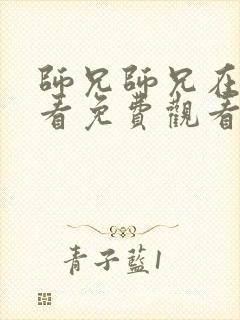 師兄師兄在
看免費觀看
青子藍1